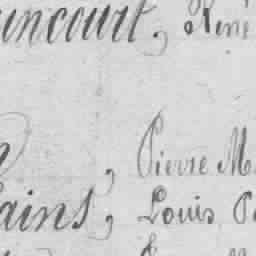 uncourt, René
, Pierre M
ains, Louis